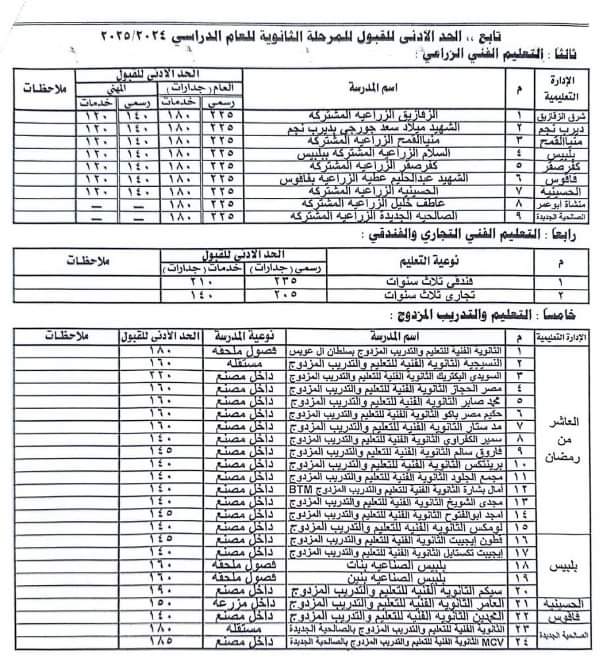 تابع ،، الحد الادنى للقبول للمرحلة الثانوية للعام الدراسي ٢٠٢٥/٢٠٢٤
ثالثا : التعليم الفني الزراعي:
الإدارة التعليمية | م | اسم المدرسة | الحد الادنى للقبول | ملاحظات
العام (جدارات) | المهني
رسمي | خدمات | رسمي | خدمات
شرق الزقازيق | ١ | الزقازيق الزراعيه المشتركه | ٢٢٥ | ١٨٠ | ١٤٠ | ١٢٠
ديرب نجم | ٢ | الشهيد ميلاد سعد جورجى بديرب نجم | ٢٢٥ | ١٨٠ | ١٤٠ | ١٢٠
منياالقمح | ٣ | منياالقمح الزراعيه المشتركه | ٢٢٥ | ١٨٠ | ١٤٠ | ١٢٠
بلبيس | ٤ | السلام الزراعيه المشتركه ببلبيس | ٢٢٥ | ١٨٠ | ١٤٠ | ١٢٠
كفرصقر | ٥ | كفرصقر الزراعيه المشتركه | ٢٢٥ | ١٨٠ | ١٤٠ | ١٢٠
فاقوس | ٦ | الشهيد عبدالحليم عطية الزراعيه بفاقوس | ٢٢٥ | ١٨٠ | ١٤٠ | ١٢٠
الحسينية | ٧ | الحسينيه الزراعيه المشتركه | ٢٢٥ | ١٨٠ | ١٤٠ | ١٢٠
منشاة ابوعمر | ٨ | عاطف خليل الزراعيه المشتركه | ٢٢٥ | ١٨٠ | — | —
الصالحية الجديدة | ٩ | الصالحيه الجديدة الزراعيه المشتركه | ٢٢٥ | ١٨٠ | — | —
رابعا : التعليم الفني التجاري والفندقي :
م | نوعية التعليم | الحد الادنى للقبول | ملاحظات
رسمي (جدارات) | خدمات (جدارات)
١ | فندقى ثلاث سنوات | ٢٣٥ | ٢١٠
٢ | تجارى ثلاث سنوات | ٢٠٥ | ١٤٠
خامسا : التعليم والتدريب المزدوج :
الإدارة التعليمية | م | اسم المدرسة | نوعية المدرسة | الحد الادنى للقبول | ملاحظات
العاشر من رمضان | ١ | الثانوية الفنية للتعليم والتدريب المزدوج بسلطان ال عويس | فصول ملحقه | ١٨٠
٢ | النسيجية الثانوية الفنية للتعليم والتدريب المزدوج | مستقله | ١٦٠
٣ | السويدى اليكتريك الثانوية الفنية للتعليم والتدريب المزدوج | داخل مصنع | ٢٢٠
٤ | مصر الحجاز الثانوية الفنية للتعليم والتدريب المزدوج | داخل مصنع | ١٦٠
٥ | محمد صابر الثانوية الفنية للتعليم والتدريب المزدوج | داخل مصنع | ١٦٠
٦ | حكيم مصر باكو الثانوية الفنية للتعليم والتدريب المزدوج | داخل مصنع | ١٦٠
٧ | مد ستار الثانوية الفنية للتعليم والتدريب المزدوج | داخل مصنع | ١٦٠
٨ | سمير الكفراوى الثانوية الفنية للتعليم والتدريب المزدوج | داخل مصنع | ١٤٠
٩ | فاروق سالم الثانوية الفنية للتعليم والتدريب المزدوج | داخل مصنع | ١٤٥
١٠ | برينتكس الثانوية الفنية للتعليم والتدريب المزدوج | داخل مصنع | ١٤٠
١١ | مجمع الجلود الثانوية الفنية للتعليم والتدريب المزدوج | داخل مصنع | ١٤٠
١٢ | امال بشارة الثانوية الفنية للتعليم والتدريب المزدوج BTM | داخل مصنع | ١٤٠
١٣ | مجدى الشويخ الثانوية الفنية للتعليم والتدريب المزدوج | داخل مصنع | ١٤٠
١٤ | امجد ابوالفتوح الثانوية الفنية للتعليم والتدريب المزدوج | داخل مصنع | ١٤٥
١٥ | لومكس الثانوية الفنية للتعليم والتدريب المزدوج | داخل مصنع | ١٤٠
بلبيس | ١٦ | قطون ايجيبت الثانوية الفنية للتعليم والتدريب المزدوج | داخل مصنع | ١٤٥
١٧ | ايجيبت تكستايل الثانوية الفنية للتعليم والتدريب المزدوج | داخل مصنع | ١٤٠
١٨ | بلبيس الصناعيه بنات | فصول ملحقه | ١٦٠
١٩ | بلبيس الصناعيه بنين | فصول ملحقه | ١٦٠
٢٠ | سيكم الثانوية الفنية للتعليم والتدريب المزدوج | داخل مصنع | ١٩٠
الحسينية | ٢١ | العامر الثانوية الفنية للتعليم والتدريب المزدوج | داخل مزرعه | ١٥٠
فاقوس | ٢٢ | المحمدين الثانوية الفنية للتعليم والتدريب المزدوج | داخل مصنع | ١٤٠
الصالحية الجديدة | ٢٣ | الثانوية الفنية للتعليم والتدريب المزدوج بالصالحية الجديدة | مستقله | ١٨٠
٢٤ | MCV الثانوية الفنية للتعليم والتدريب المزدوج بالصالحية الجديدة | داخل مصنع | ١٨٥